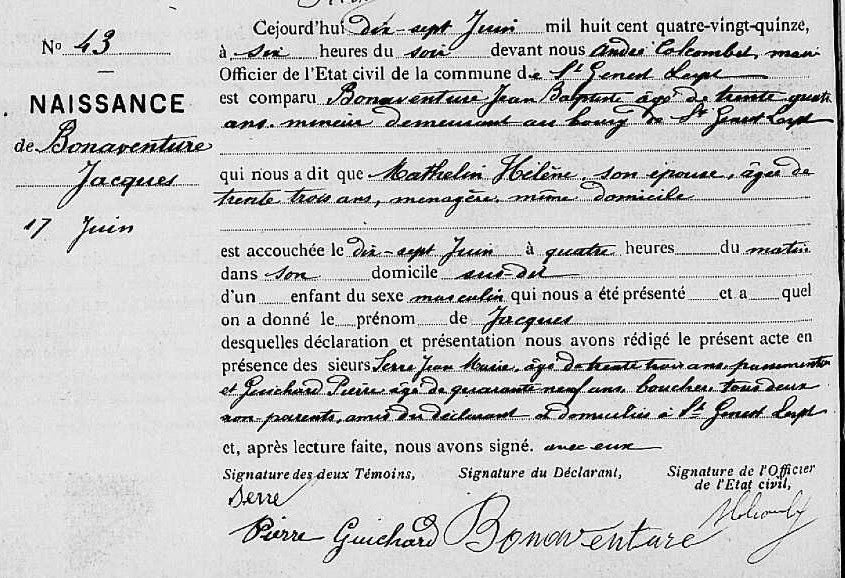 N° 43
NAISSANCE
de Bonaventure
Jacques
17 Juin
Cejourd'hui dix-sept Juin mil huit cent quatre-vingt-quinze,
à six heures du soir devant nous André Colcombet, maire
Officier de l'Etat civil de la commune de St Genest Lerpt
est comparu Bonaventure Jean Baptiste âgé de trente quatre
ans, mineur demeurant au bourg de St Genest Lerpt
qui nous a dit que Mathelin Hélène, son épouse, âgée de
trente trois ans, ménagère, même domicile
est accouchée le dix-sept Juin à quatre heures du matin
dans son domicile sus-dit
d'un enfant du sexe masculin qui nous a été présenté et a quel
on a donné le prénom de Jacques
desquelles déclaration et présentation nous avons rédigé le présent acte en
présence des sieurs Serre Jean Marie, âgé de trente trois ans, passementier
et Guichard Pierre âgé de quarante neuf ans, boucher, tous deux
non parents, amis du déclarant et domiciliés à St Genest Lerpt
et, après lecture faite, nous avons signé. avec eux
Signature des deux Témoins, Signature du Déclarant, Signature de l'Officier
de l'Etat civil,
Serre
Pierre Guichard Bonaventure